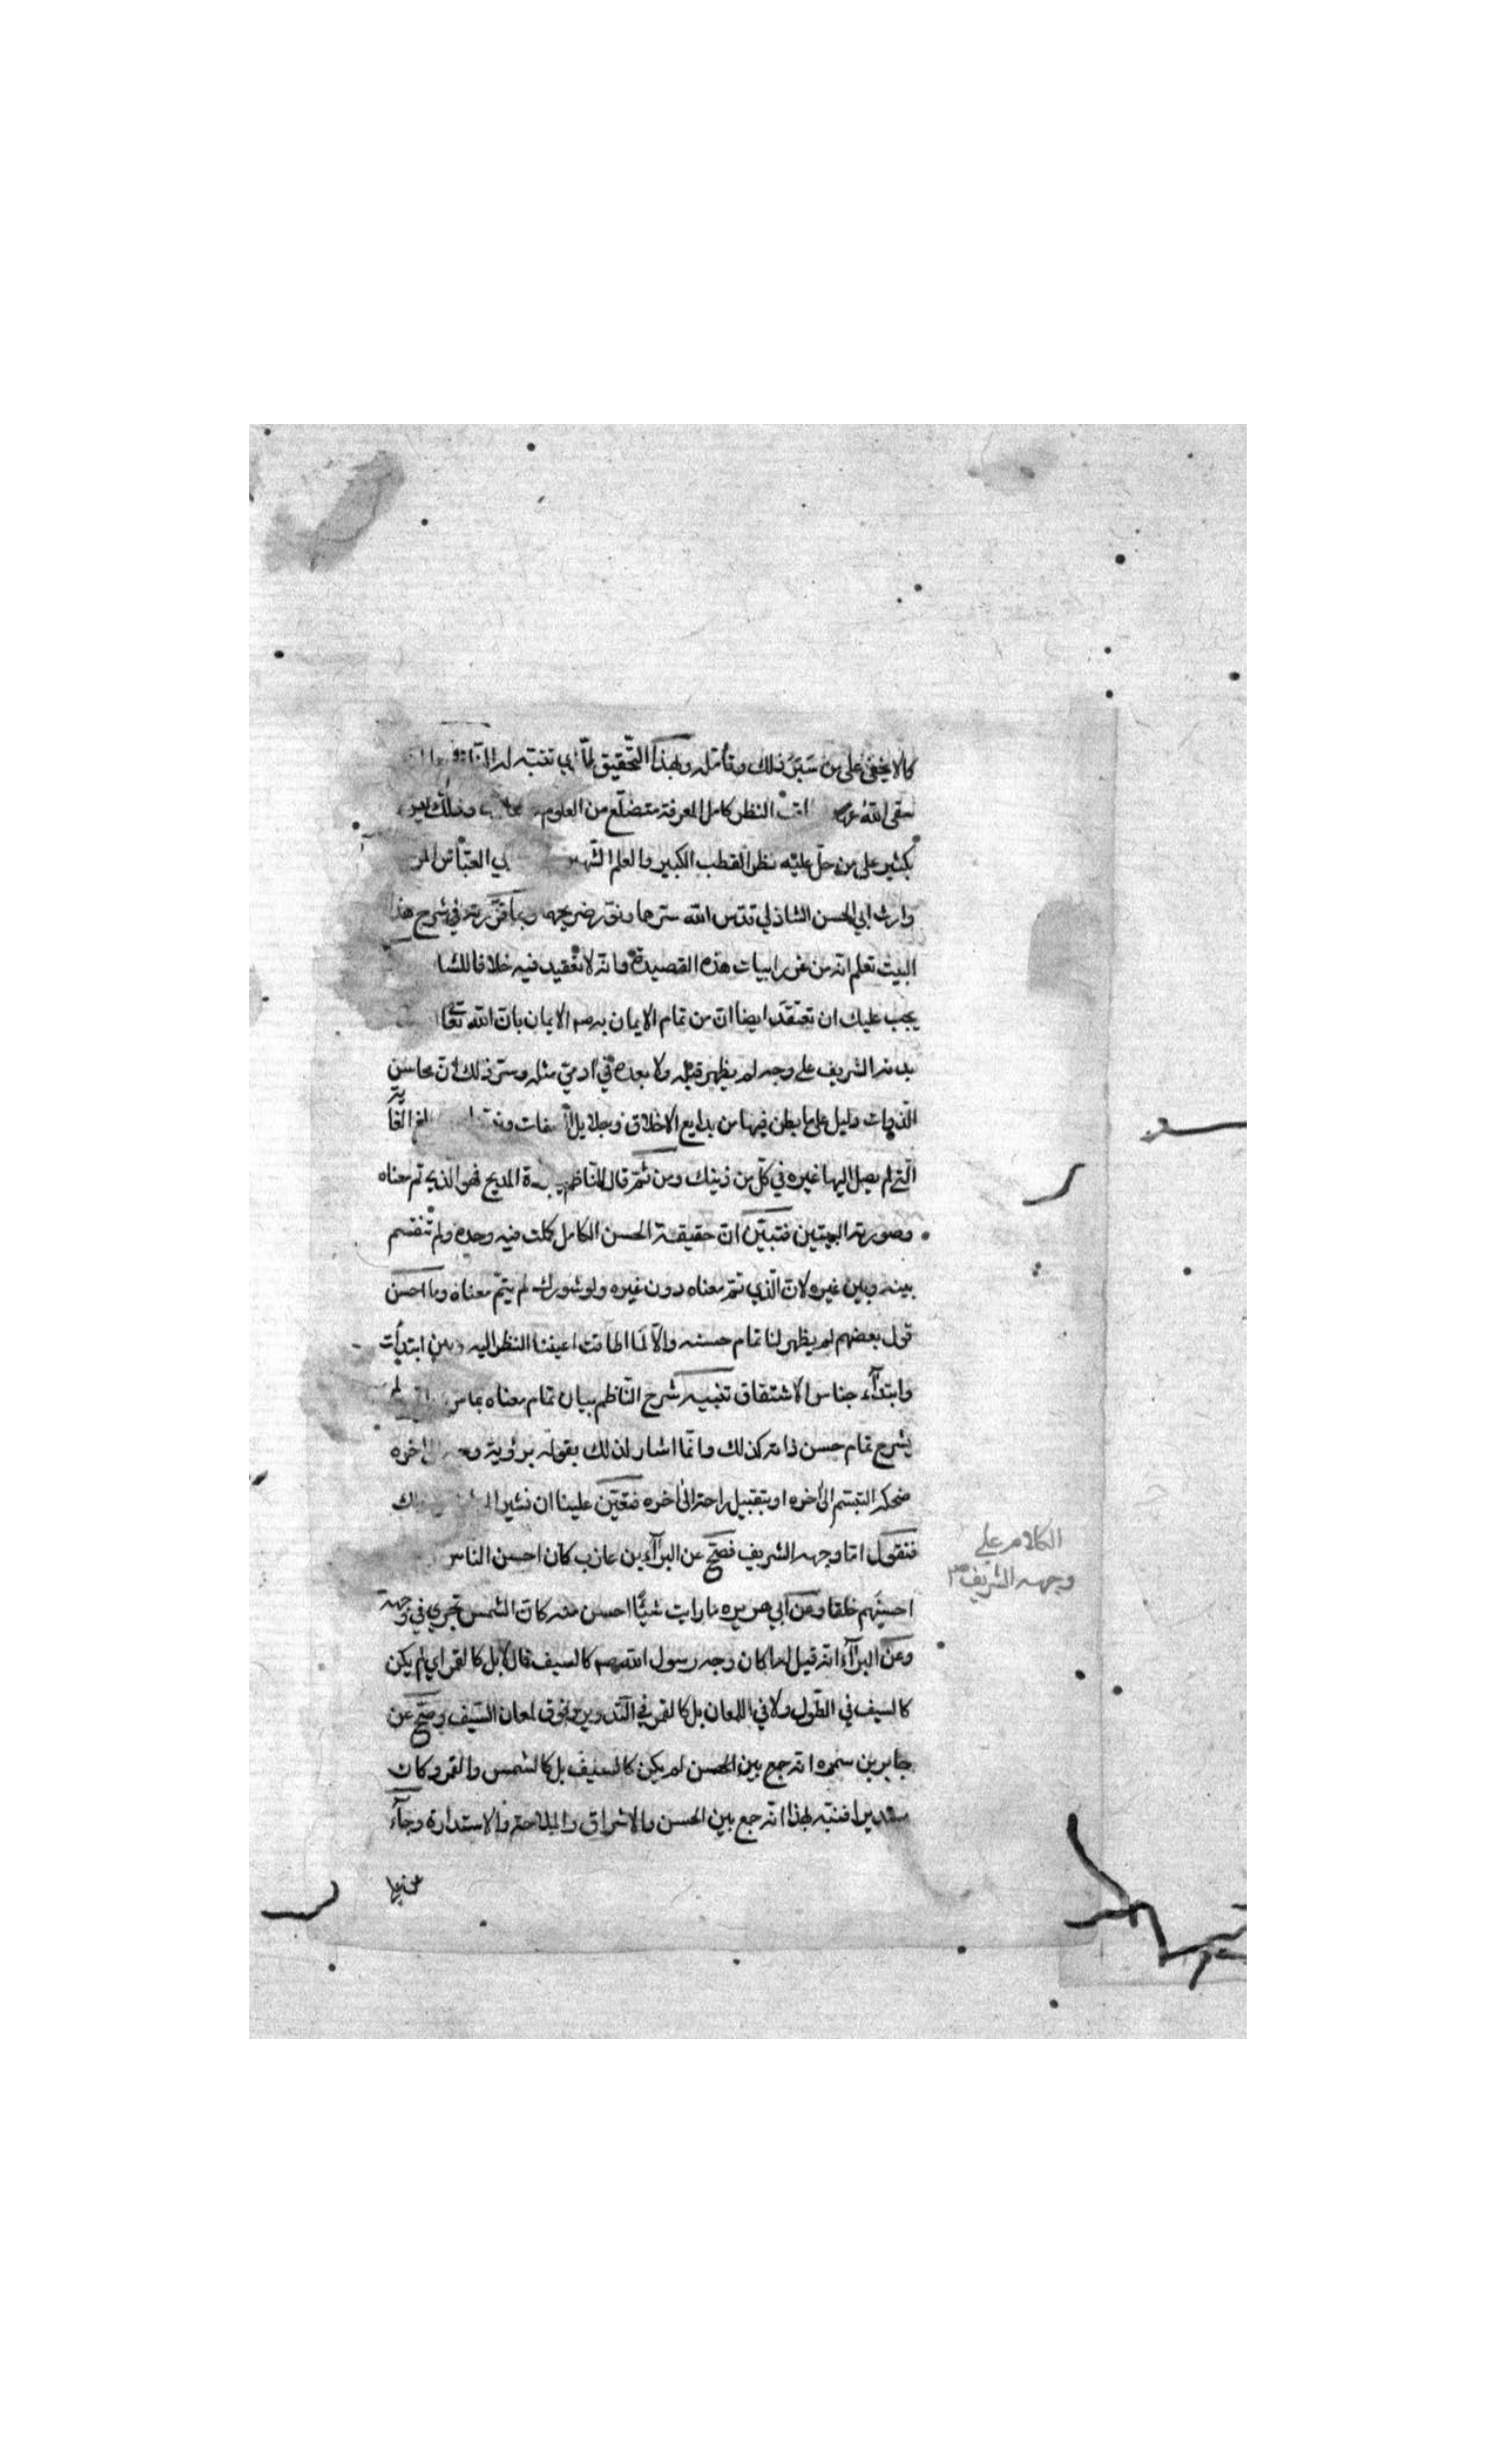 كما لا يخفى على من سبر ذلك وتأمله وبهذا التحقيق تنبه له
سقى الله النظر كامل المعرفة متضلع من العلوم وذلك ليس
بكثير على من حل عليه نظر القطب الكبير والعلم الشهير ابي العباس المر
وارث ابي الحسن الشاذلي قدس الله سرهما ونور ضريحهما وبما قررته في شرح هذا
البيت تعلم انه من غرر ابيات هذه القصيدة وانه لا تعقيد فيه خلافا للشا
يجب عليك ان تعتقد ايضا ان من تمام الايمان به صم الايمان بان الله تعا
بدنه الشريف على وجه لم يظهر قبله ولا بعده في ادمي مثله وسر ذلك ان محاسن
الذوات دليل على ما بطن فيها من بدايع الاخلاق وجلايل الصفات
التي لم يصل اليها غيره في كل من ذينك ومن ثم قال الناظم المديح فهو الذي تم معناه
وصورته البيتين فتبين ان حقيقة الحسن الكامل كملت فيه وحده ولم تنقسم
بينه وبين غيره لان الذي تم معناه دون غيره ولو شورك لم يتم معناه وما احسن
قول بعضهم لم يظهر لنا تمام حسنه والا لما اطاقت اعيننا النظر اليه وبين ابتدأت
وابتداء جناس الاشتقاق تنبيه شرح الناظم بيان تمام معناه بما لم
يشرح تمام حسن ذاته كذلك وانما اشار لذلك بقوله برؤية وجه اخره
ضحكه التبسم الى اخره او بتقبيل راحة الى اخره فتعين علينا ان نشير
فنقول اما وجهه الشريف فصح عن البراء بن عازب كان احسن الناس
احسنهم خلقا وعن ابي هريره ما رايت شيئا احسن منه كان الشمس تجري في وجهه
وعن البراء انه قيل له اكان وجه رسول الله صم كالسيف قال لا بل كالقمر اي لم يكن
كالسيف في الطول ولا في اللمعان بل كالقمر في التدوير وفوق لمعان السيف وصح عن
جابر بن سمره انه جمع بين الحسن لم يكن كالسيف بل كالشمس والقمر وكان
مستديرا فنبه بهذا انه جمع بين الحسن والاشراق والملاحة والاستدارة وجاء
الكلام على
وجهه الشريف صم